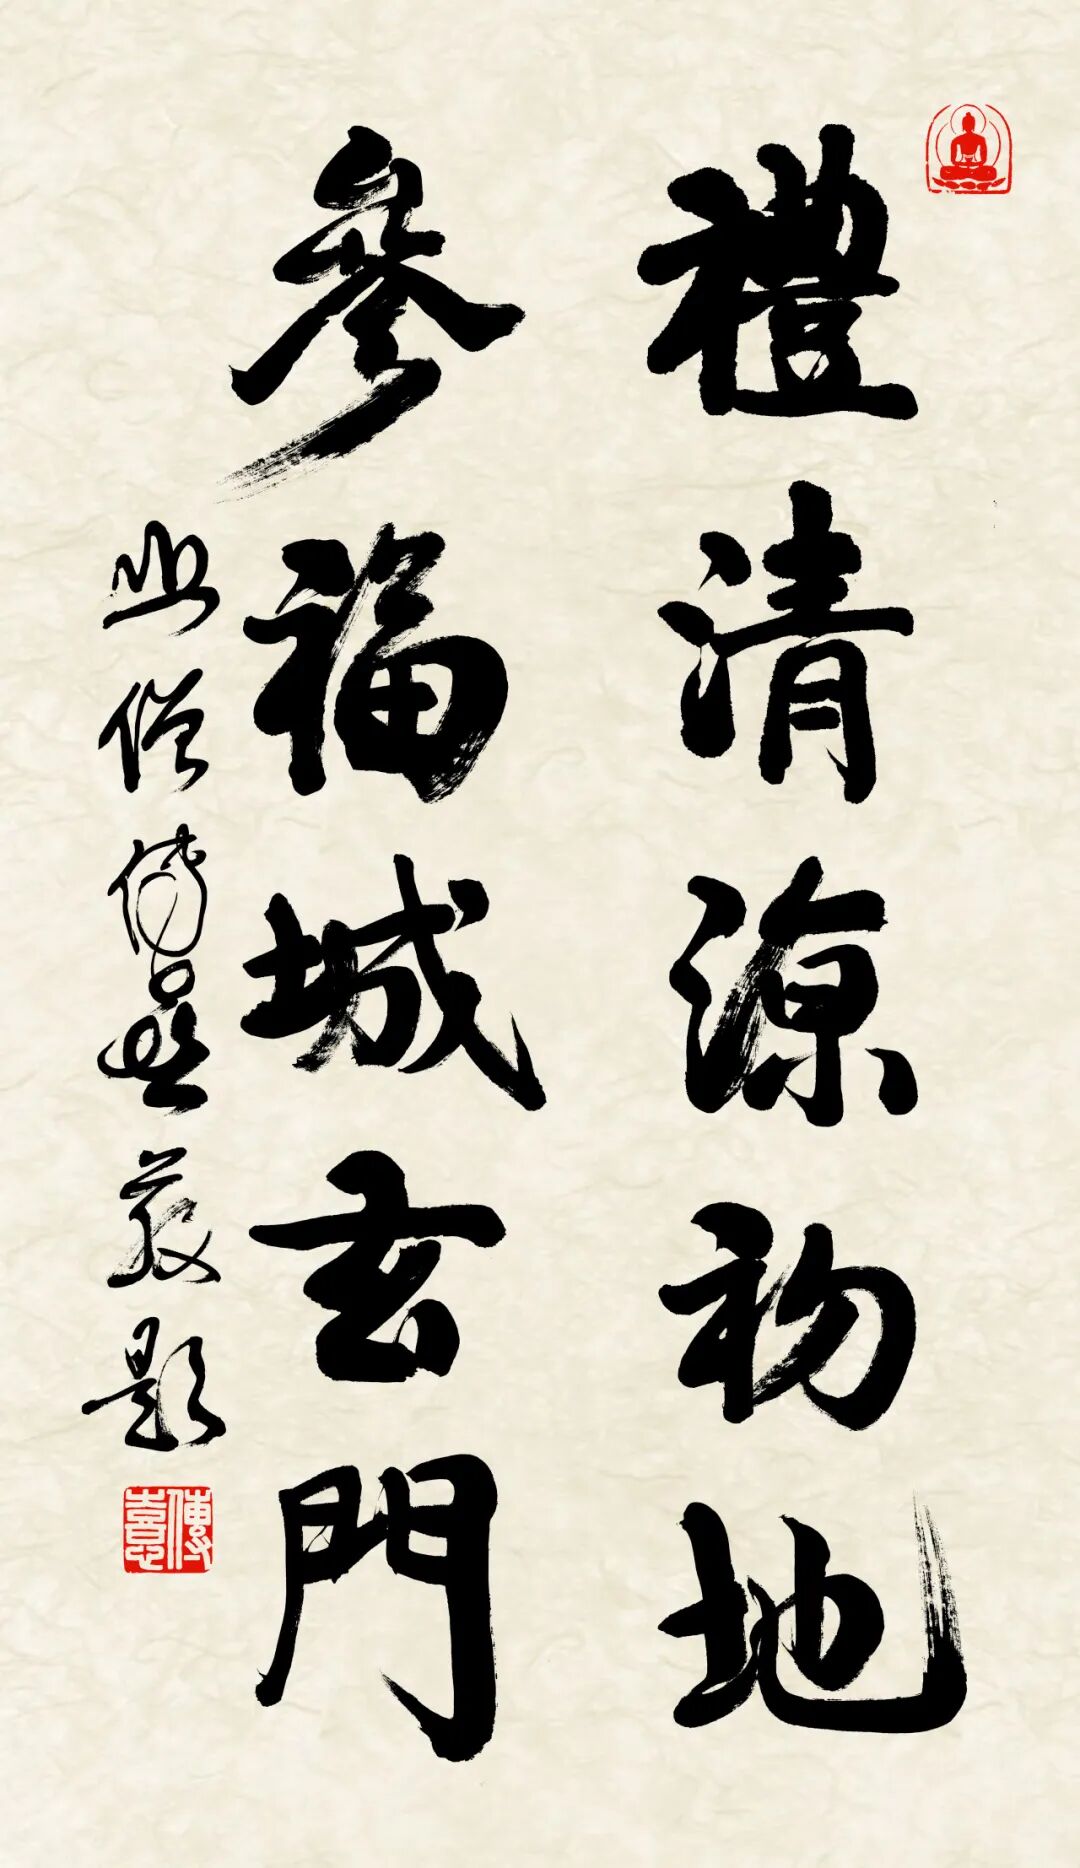 禮清源初地
參福城玄門
山僧傳喜敬題
傳喜